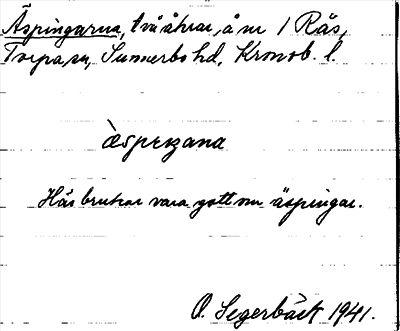 Äspingarna, två åkrar, å nr 1 Rås,
Torpa sn, Sunnerbo hd, Kronob. l.
Här brukar vara gott om äspingar.
O. Segerbäck 1941.